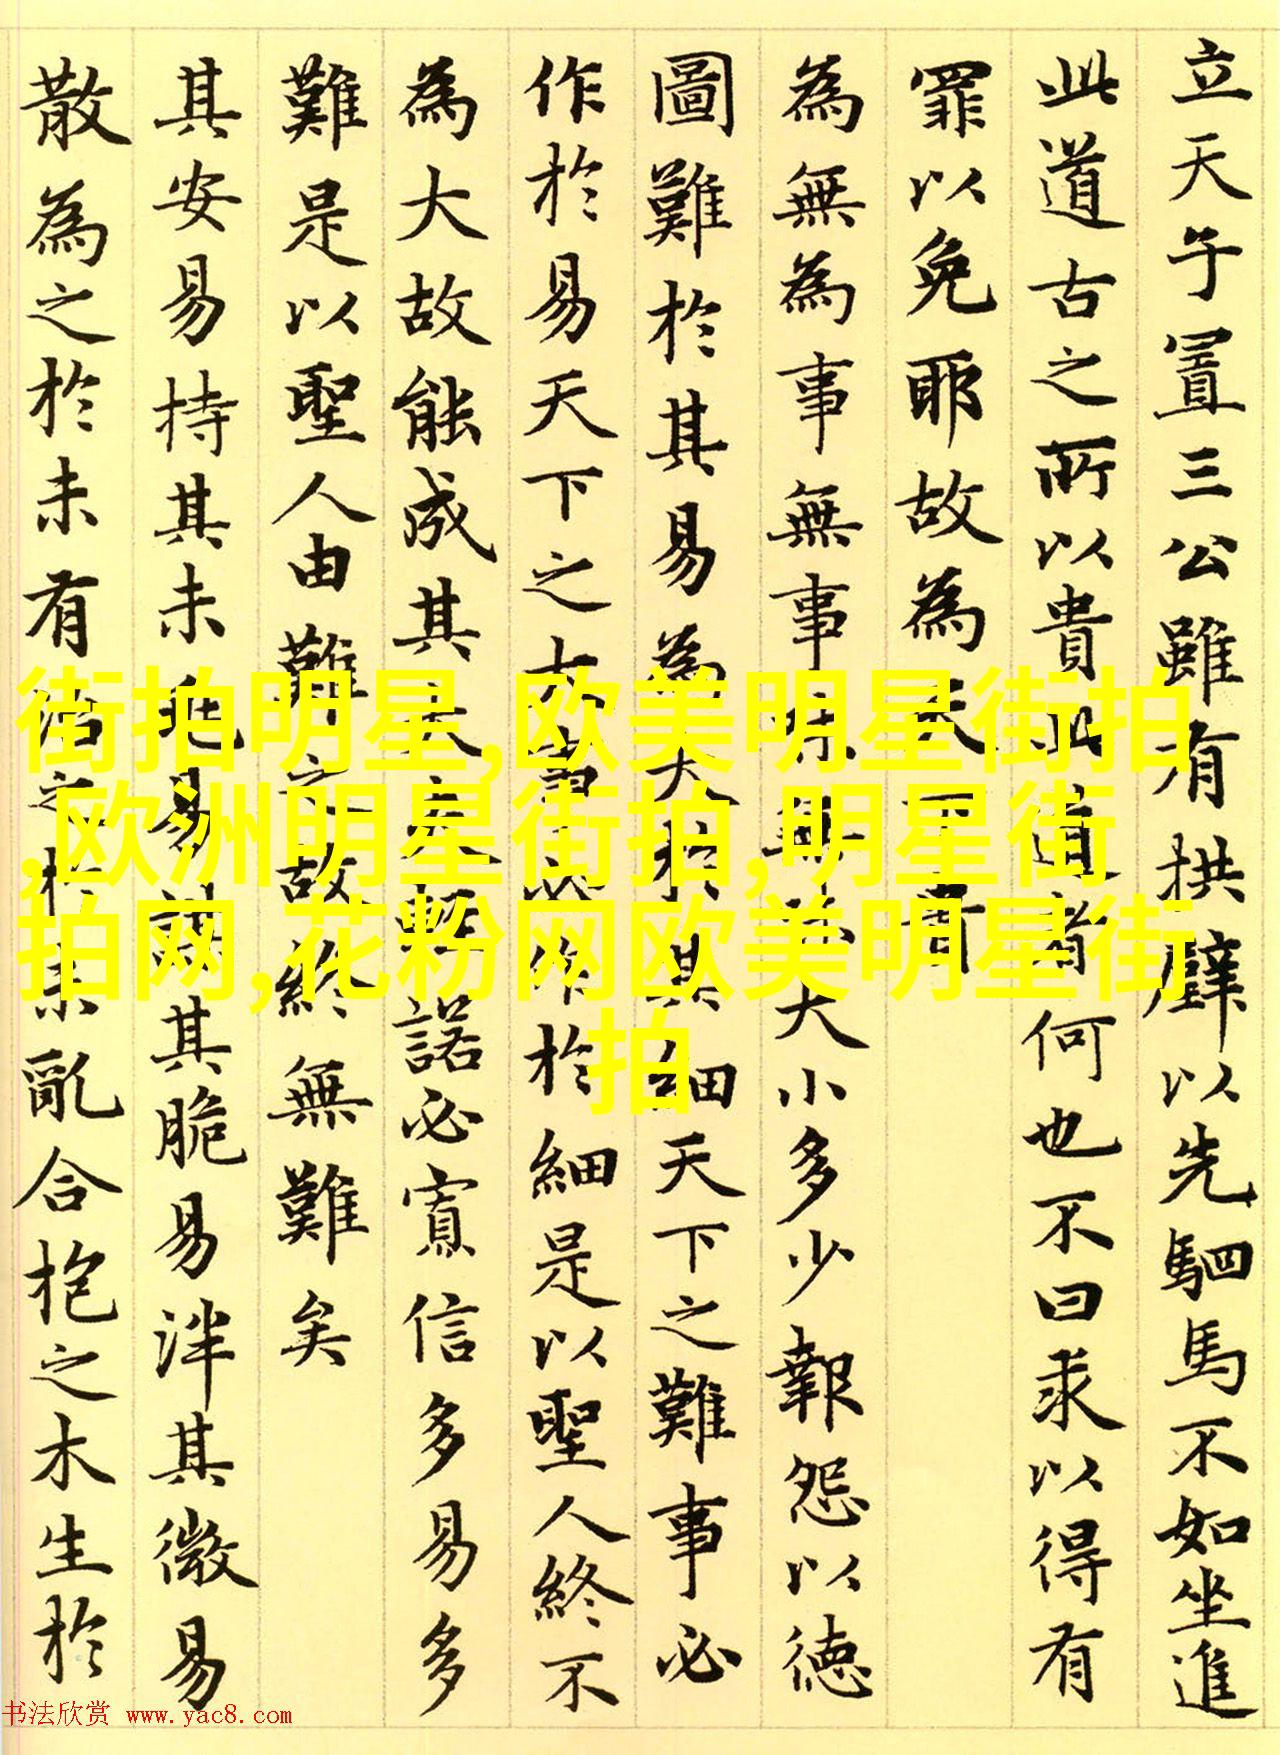 立天子置三公雖有拱璧以先駟馬不如坐進
此道古之所以貴此道者何也不曰求以得有
罪以免耶故為天下貴
為無為事無事味無味大小多少報怨以德
圖難於其易為大於其細天下之難事必
作於易天下之大事必作於細是以聖人終不
為大故能成其大夫輕諾必寡信多易多
難是以聖人由難之故終無難矣
其安易持其未兆易謀其脆易泮其微易
散為之於未有治之於未亂合抱之木生於
街拍明星,欧美明星街拍
,欧洲明星街拍,明星街
拍网,花粉网欧美明星街
拍
书法欣赏 www.yac8.com